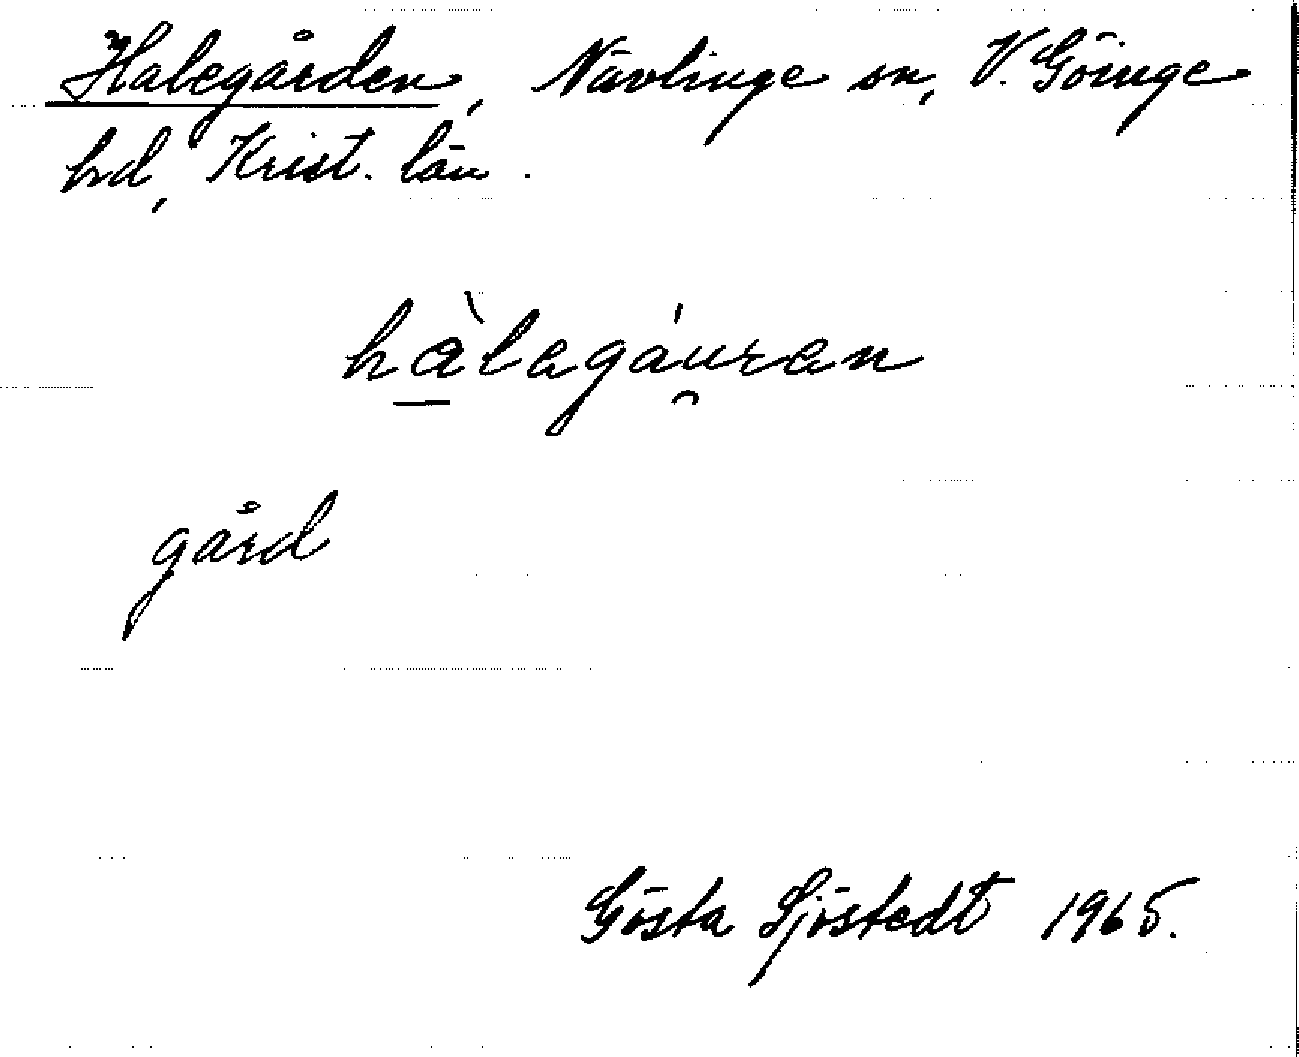 Halegården, Nävlinge sn, V. Göinge
hd, Krist. län.
hàlegáu̯ren
gård
Gösta Sjöstedt 1965.